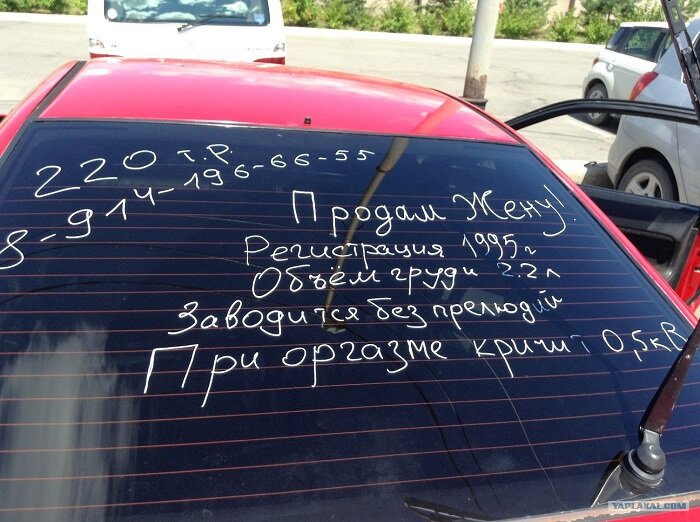 220 т.р.
8-914-196-66-55
Продам Жену!
Регистрация 1995г
Объём груди 2.2л
Заводится без прелюдий
При оргазме кричит 0,5кв
YAPLAKAL.COM